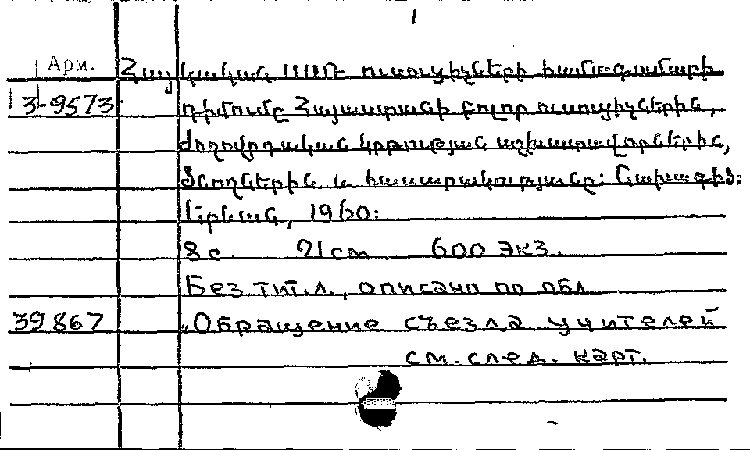 1
Арм. Հայկական ՍՍՌ ուսուցիչների համագումարի
3-9573 դիմումը Հայաստանի բոլոր ուսուցիչներին,
ժողովրդական կրթության աշխատավորներին,
ծնողներին և հասարակությանը: Նախագիծ:
Երևան, 1960:
8 с. 21 см 600 экз.
Без тит. л., описано по обл.
39867 „Обращение съезда учителей
см. след. карт.